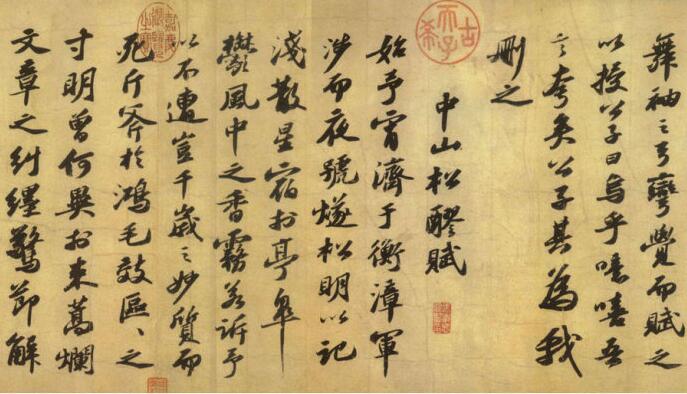 舞袖之弓彎覺而賦之
以授公子曰烏乎噫嘻吾
言夸矣公子其為我
刪之
中山松醪賦
始予宵濟于衡漳軍
涉而夜號燧松明以記
淺散星宿於亭皋
鬱風中之香霧若訴予
以不遭豈千歲之妙質而
死斤斧於鴻毛效區區之
寸明曾何異於束蒿爛
文章之糾纆驚節解
古希天子